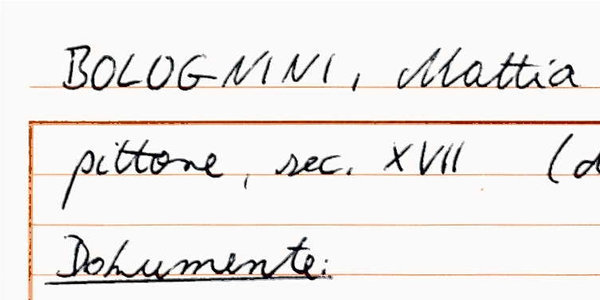 BOLOGNINI, Mattia
pittore, sec. XVII (d
Dokumente: